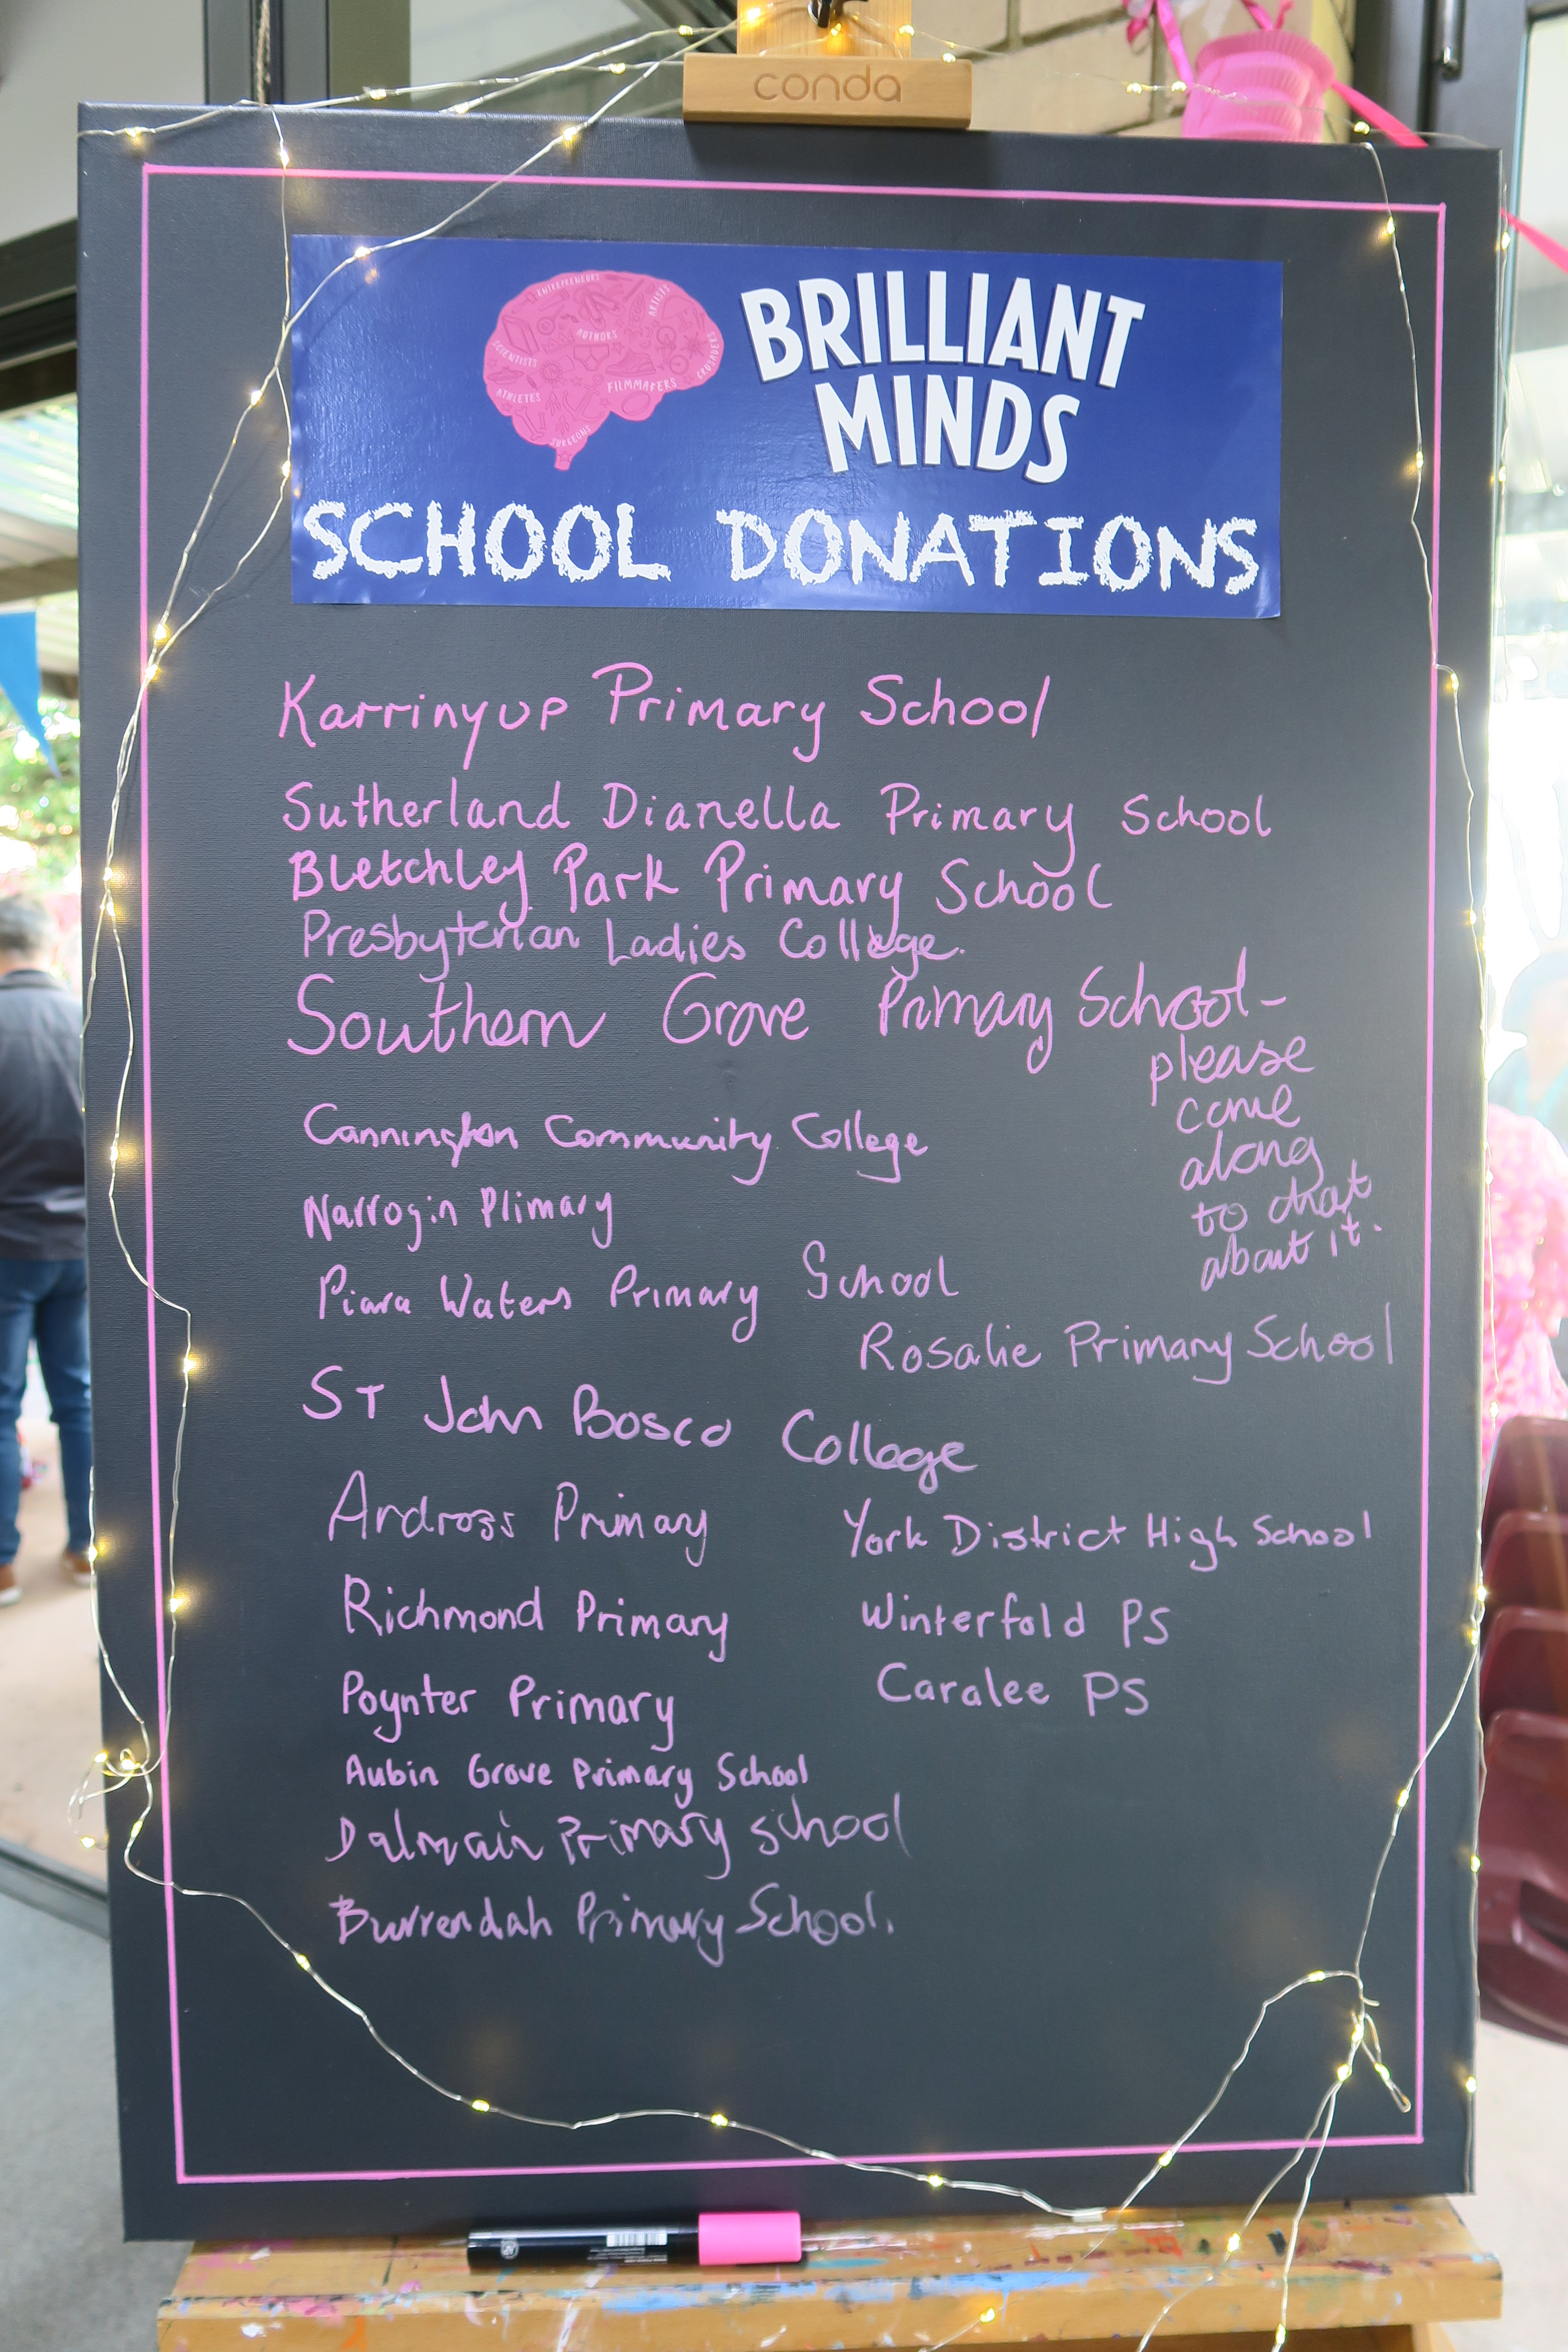 conda
ENTREPRENEURS
ARTISTS
AUTHORS
SCIENTISTS
CRUSADERS
FILMMAKERS
ATHLETES
SURGEONS
BRILLIANT
MINDS
SCHOOL DONATIONS
Karrinyup Primary School
Sutherland Dianella Primary School
Bletchley Park Primary School
Presbyterian Ladies College.
Southern Grove Primary School-
please
come
along
to chat
about it.
Cannington Community College
Narrogin Primary
Piara Waters Primary School
Rosalie Primary School
ST John Bosco College
Ardross Primary
York District High School
Richmond Primary
Winterfold PS
Poynter Primary
Caralee PS
Aubin Grove Primary School
Dalmain Primary School
Burrendah Primary School.